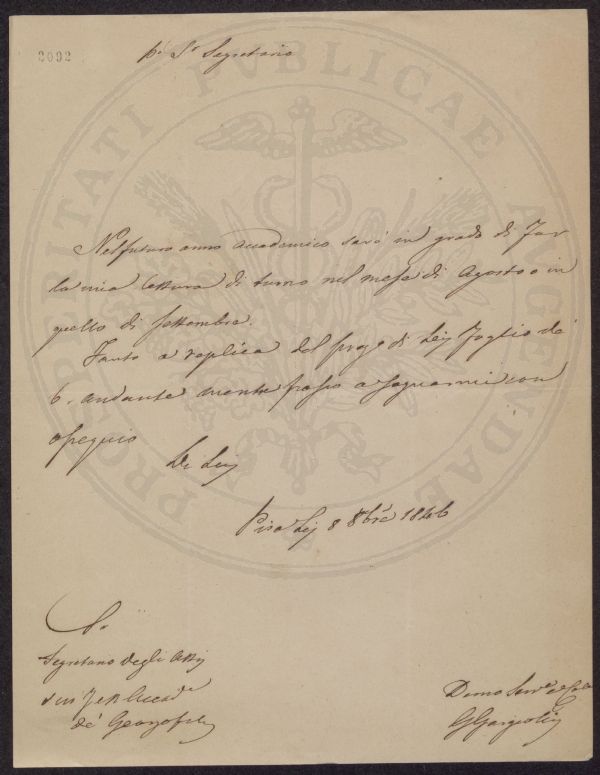 2092
Sr Segretario
PROSPERITATI PVBLICAE AVGENDAE
Nel futuro anno accademico sarò in grado di far
la mia lettura di turno nel mese di Agosto o in
quello di Settembre.
Tanto a replica del preg.º di Lei Foglio de'
6. andante mentre passo a segnarmi con
ossequio
Di Lei
Pisa li 8 8bre 1846
Segretario degli Atti
Accad.a
de' Georgofili
Devmo Serv.e